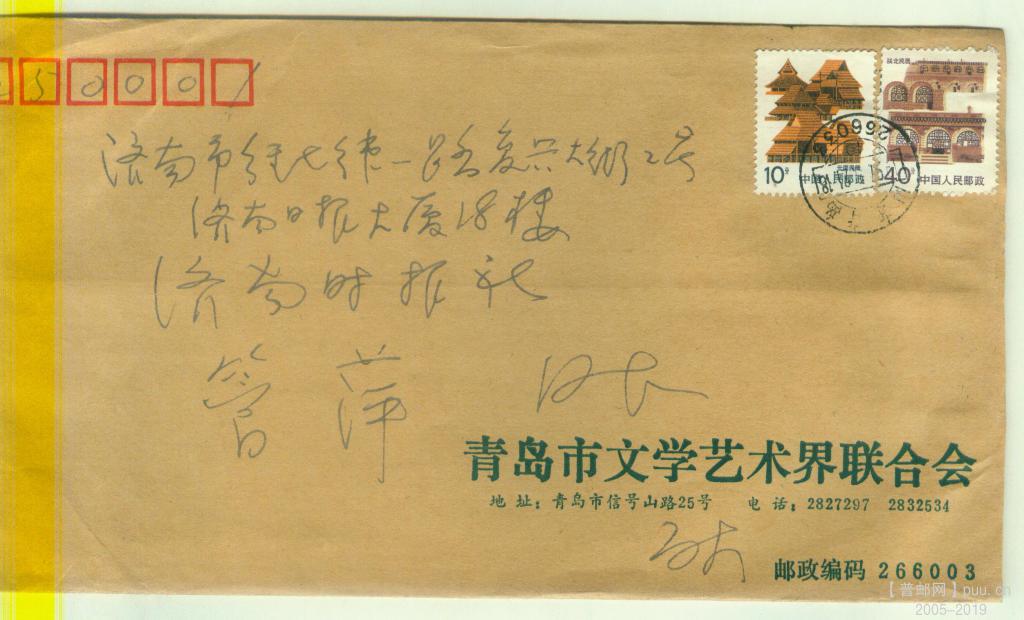 250001
济南市经七纬一路复兴大街2号
济南日报大厦18楼
济南时报社
管萍 同志
陕北民居
10分 中国人民邮政
北京民居
40分 中国人民邮政
青岛市文学艺术界联合会
地 址：青岛市信号山路25号 电 话：2827297 2832534
邮政编码 266003
【普邮网】puu.cn
2005-2019